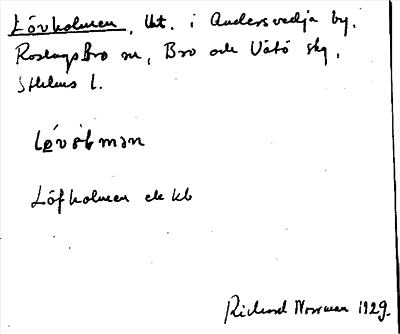 Lövholmen, lht. i Andersvedja by,
Roslags Bro sn, Bro och Vätö skg,
Sthlms l.
Löfholmen ek kb
Richard Norrman 1929.